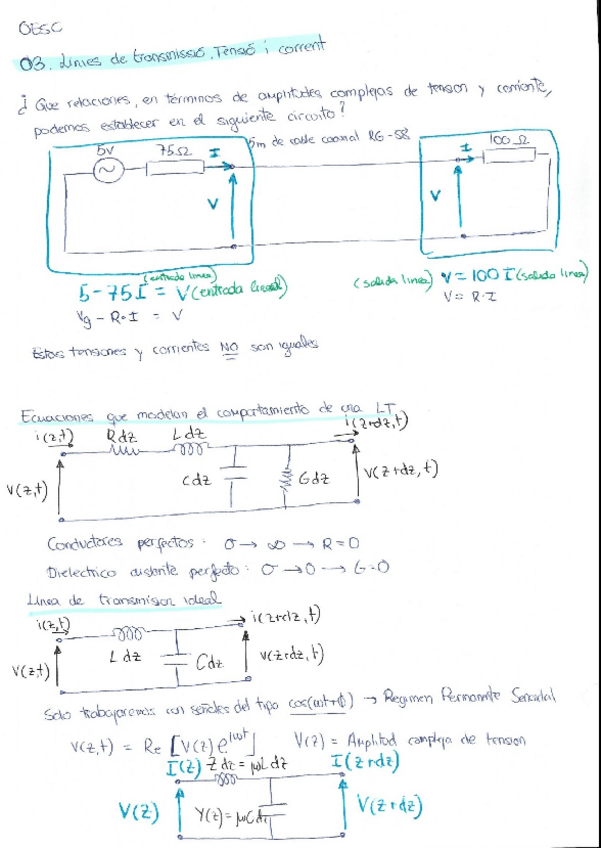 OESC
03. Linies de transmissió, Tensó i corrent
¿ Que relaciones, en términos de amplitudes complejas de tension y corriente,
podemos establecer en el siguiente circuito?
5V 75Ω I 5m de cable coaxial RG-58 I 100Ω
V V
(entrada linea)
5 - 75I = V (entrada linea)
(salida linea) V = 100 I (salida linea)
Vg - R·I = V
V = R·I
Estas tensiones y corrientes NO son iguales
Ecuaciones que modelan el comportamiento de una LT
i(z,t) Rdz Ldz i(z+dz,t)
V(z,t) Cdz Gdz V(z+dz,t)
Conductores perfectos: σ → ∞ → R=0
Dielectrico aislante perfecto: σ → 0 → G=0
Linea de transmision ideal
i(z,t) i(z+dz,t)
V(z,t) Ldz Cdz V(z+dz,t)
Solo trabajaremos con señales del tipo cos(ωt+ϕ) → Regimen Permanente Senoidal
V(z,t) = Re [V(z) e^jωt] V(z) = Amplitud compleja de tension
I(z) Z dz = jωLdz I(z+dz)
V(z) Y(z) = jωCdz V(z+dz)